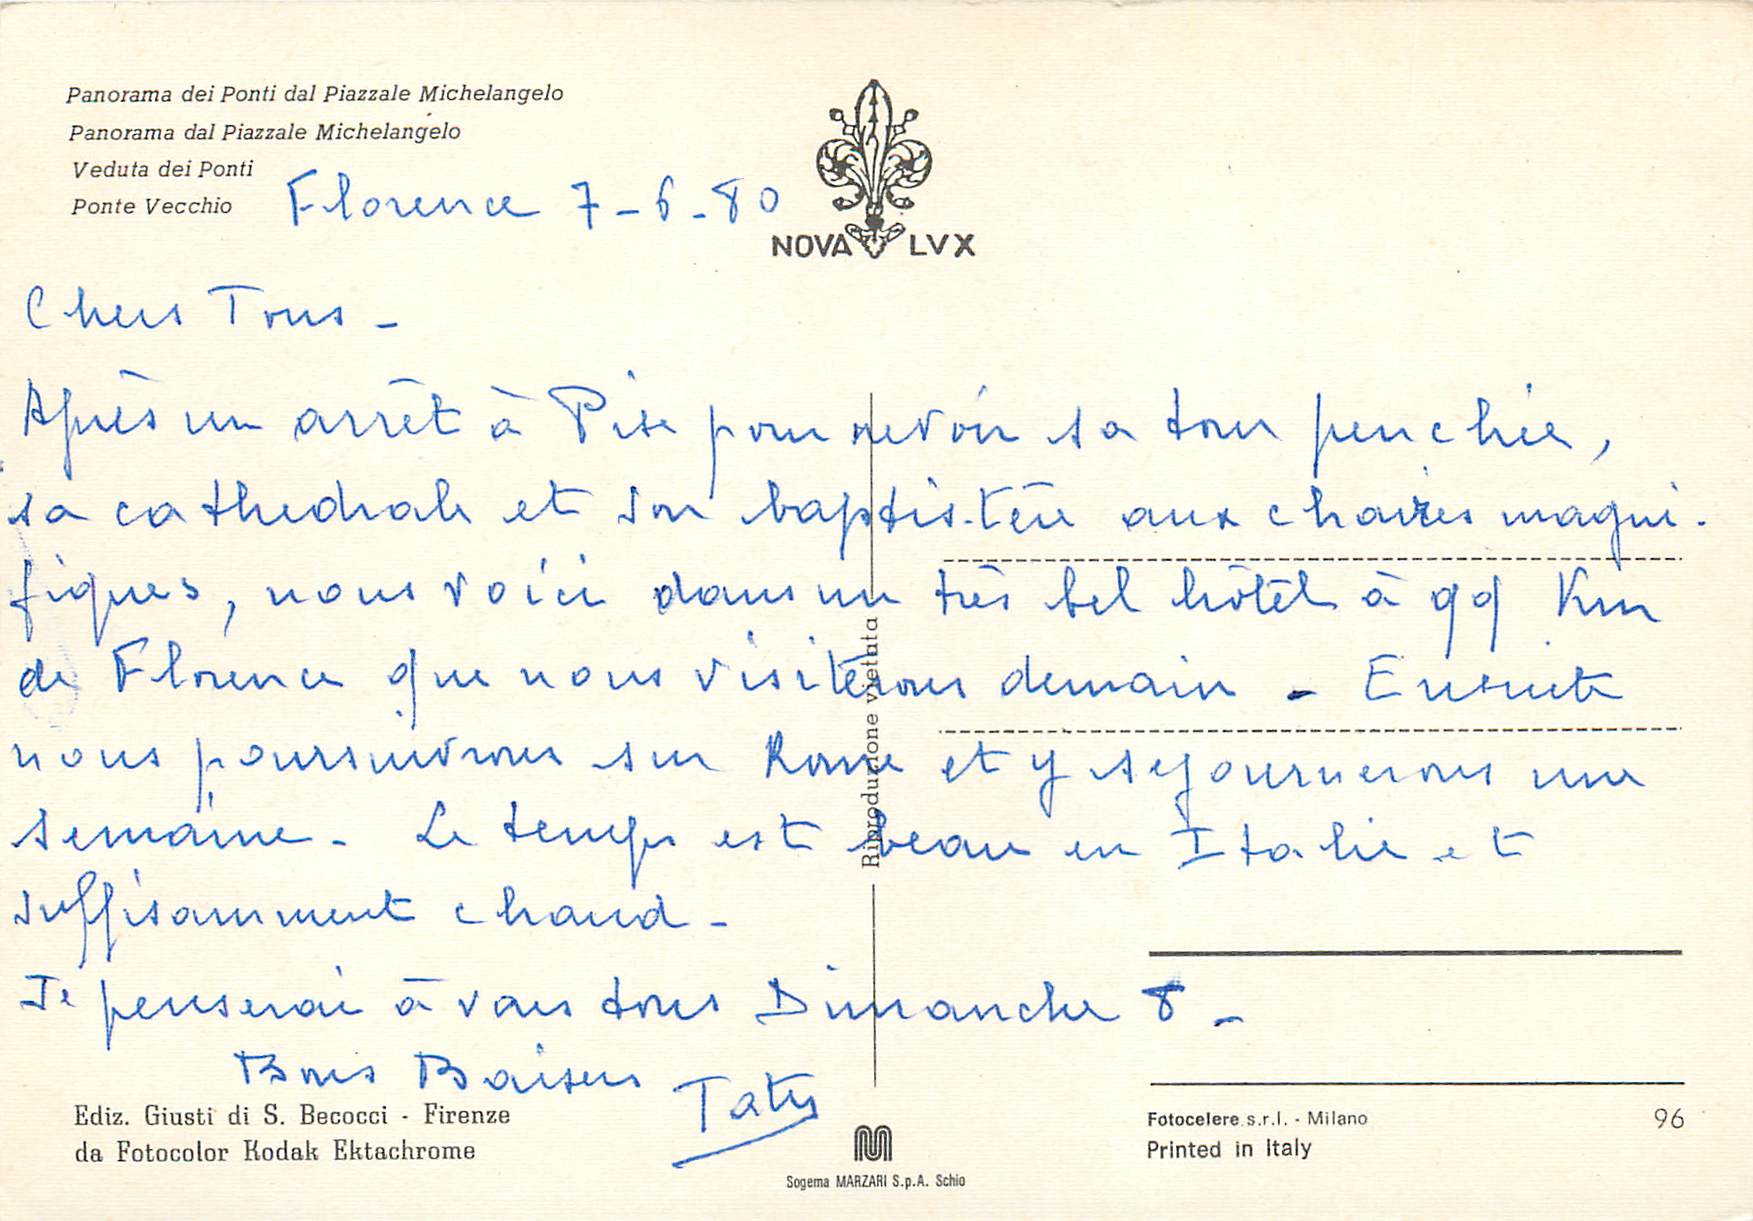 Panorama dei Ponti dal Piazzale Michelangelo
Panorama dal Piazzale Michelangelo
Veduta dei Ponti
Ponte Vecchio
NOVA LVX
Florence 7-6-80
Chers Tous -
Après un arrêt à Pise pour revoir sa tour penchée,
sa cathedrale et son baptis-tère aux chaires magni-
fiques, nous voici dans un très bel hôtel à qq Km
de Florence que nous visiterons demain - Ensuite
nous poursuivrons sur Rome et y sejournerons une
semaine - Le temps est beau en Italie et
suffisamment chaud -
Je penserai à vous tous Dimanche 8 -
Bons Baisers
Taty
Riproduzione vietata
Ediz. Giusti di S. Becocci - Firenze
da Fotocolor Kodak Ektachrome
Sogema MARZARI S.p.A. Schio
Fotocelere s.r.l. - Milano
96
Printed in Italy